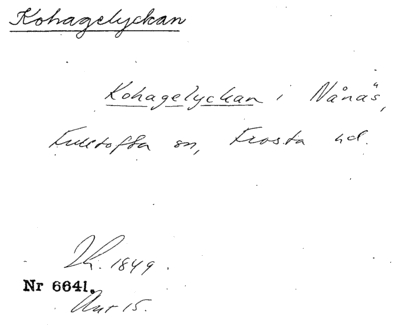 Kohagelyckan
Kohagelyckan i Nånäs,
Fulltofta sn, Frosta hd.
Lh. 1849.
Nr 6641.
Aur 15.